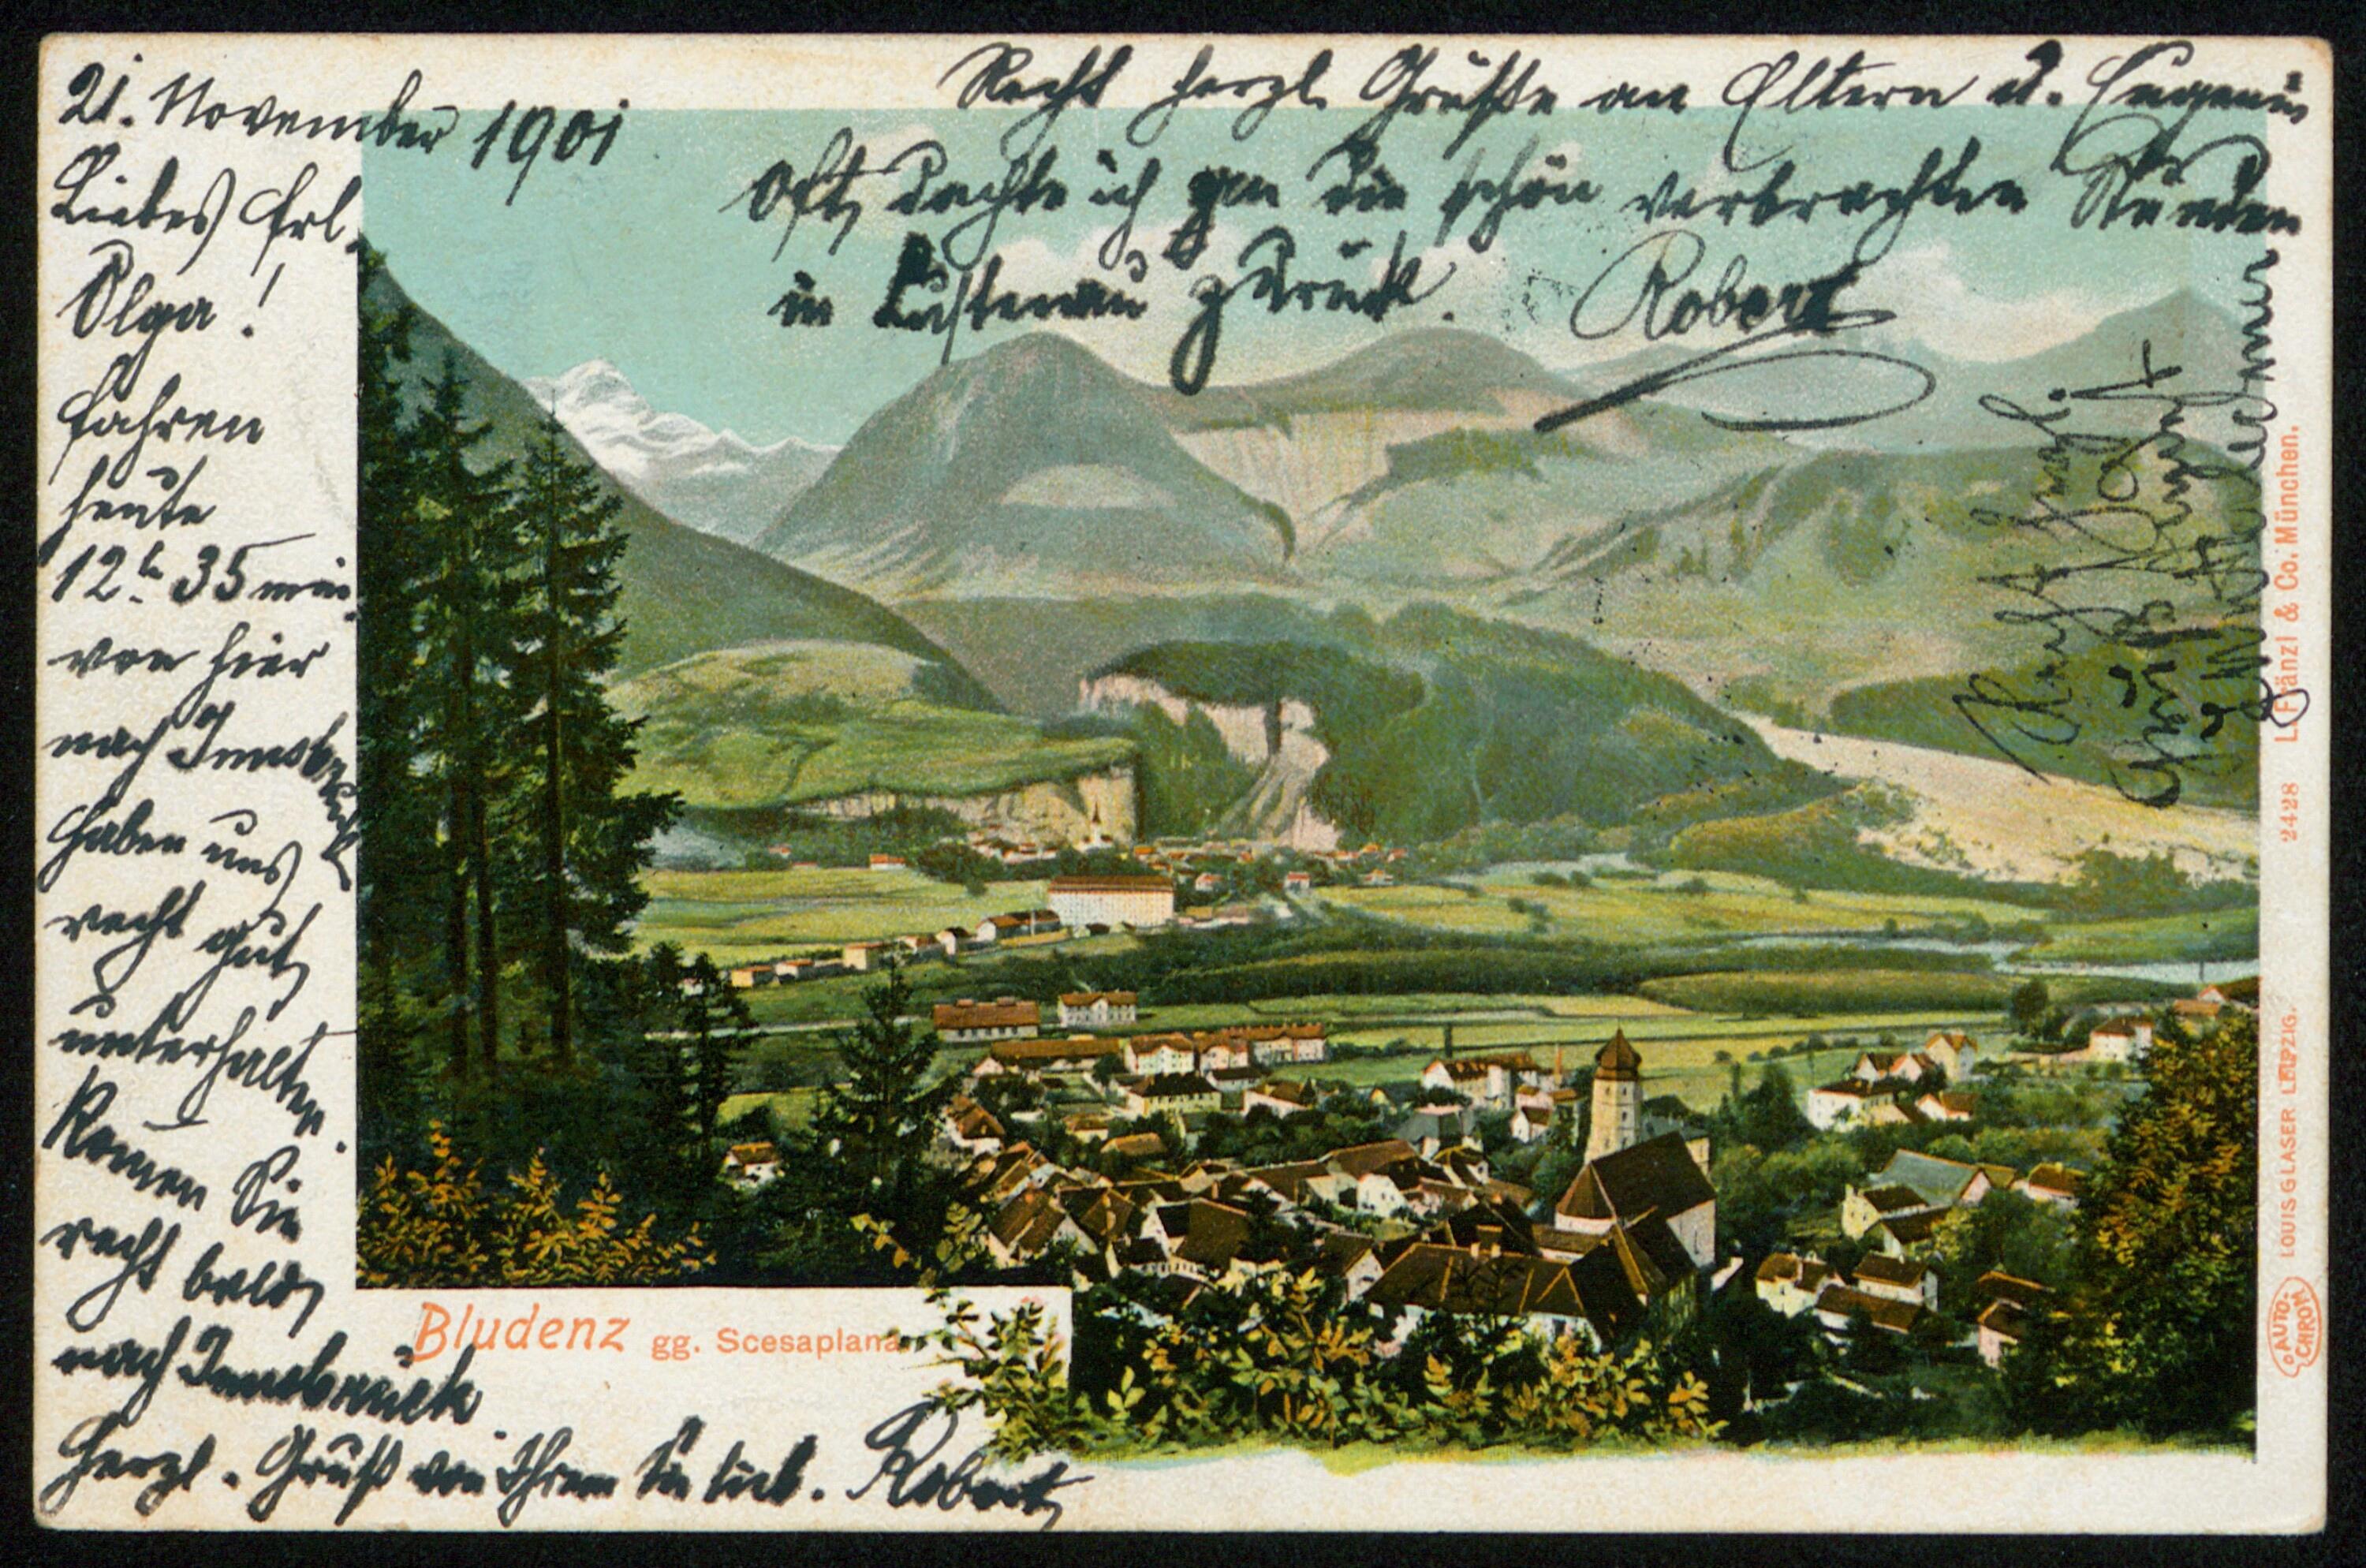 21. November 1901
Liebes Frl.
Olga!
fahren
heute
12h 35 min.
von hier
nach Innsbruck
haben uns
recht gut
unterhalten.
Komen Sie
recht bald
nach Innsbruck
Herzl. Gruß von Ihrem Sie lieb. Robert
Recht herzl. Grüße an Eltern u. Eugenie
Oft dachte ich gern die schön verbrachten Stunden
in Lustenau zurück. Robert
Bludenz gg. Scesaplana
2428 L. Fränzl & Co. München.
LOUIS GLASER LEIPZIG.
AUTO-
CHROM